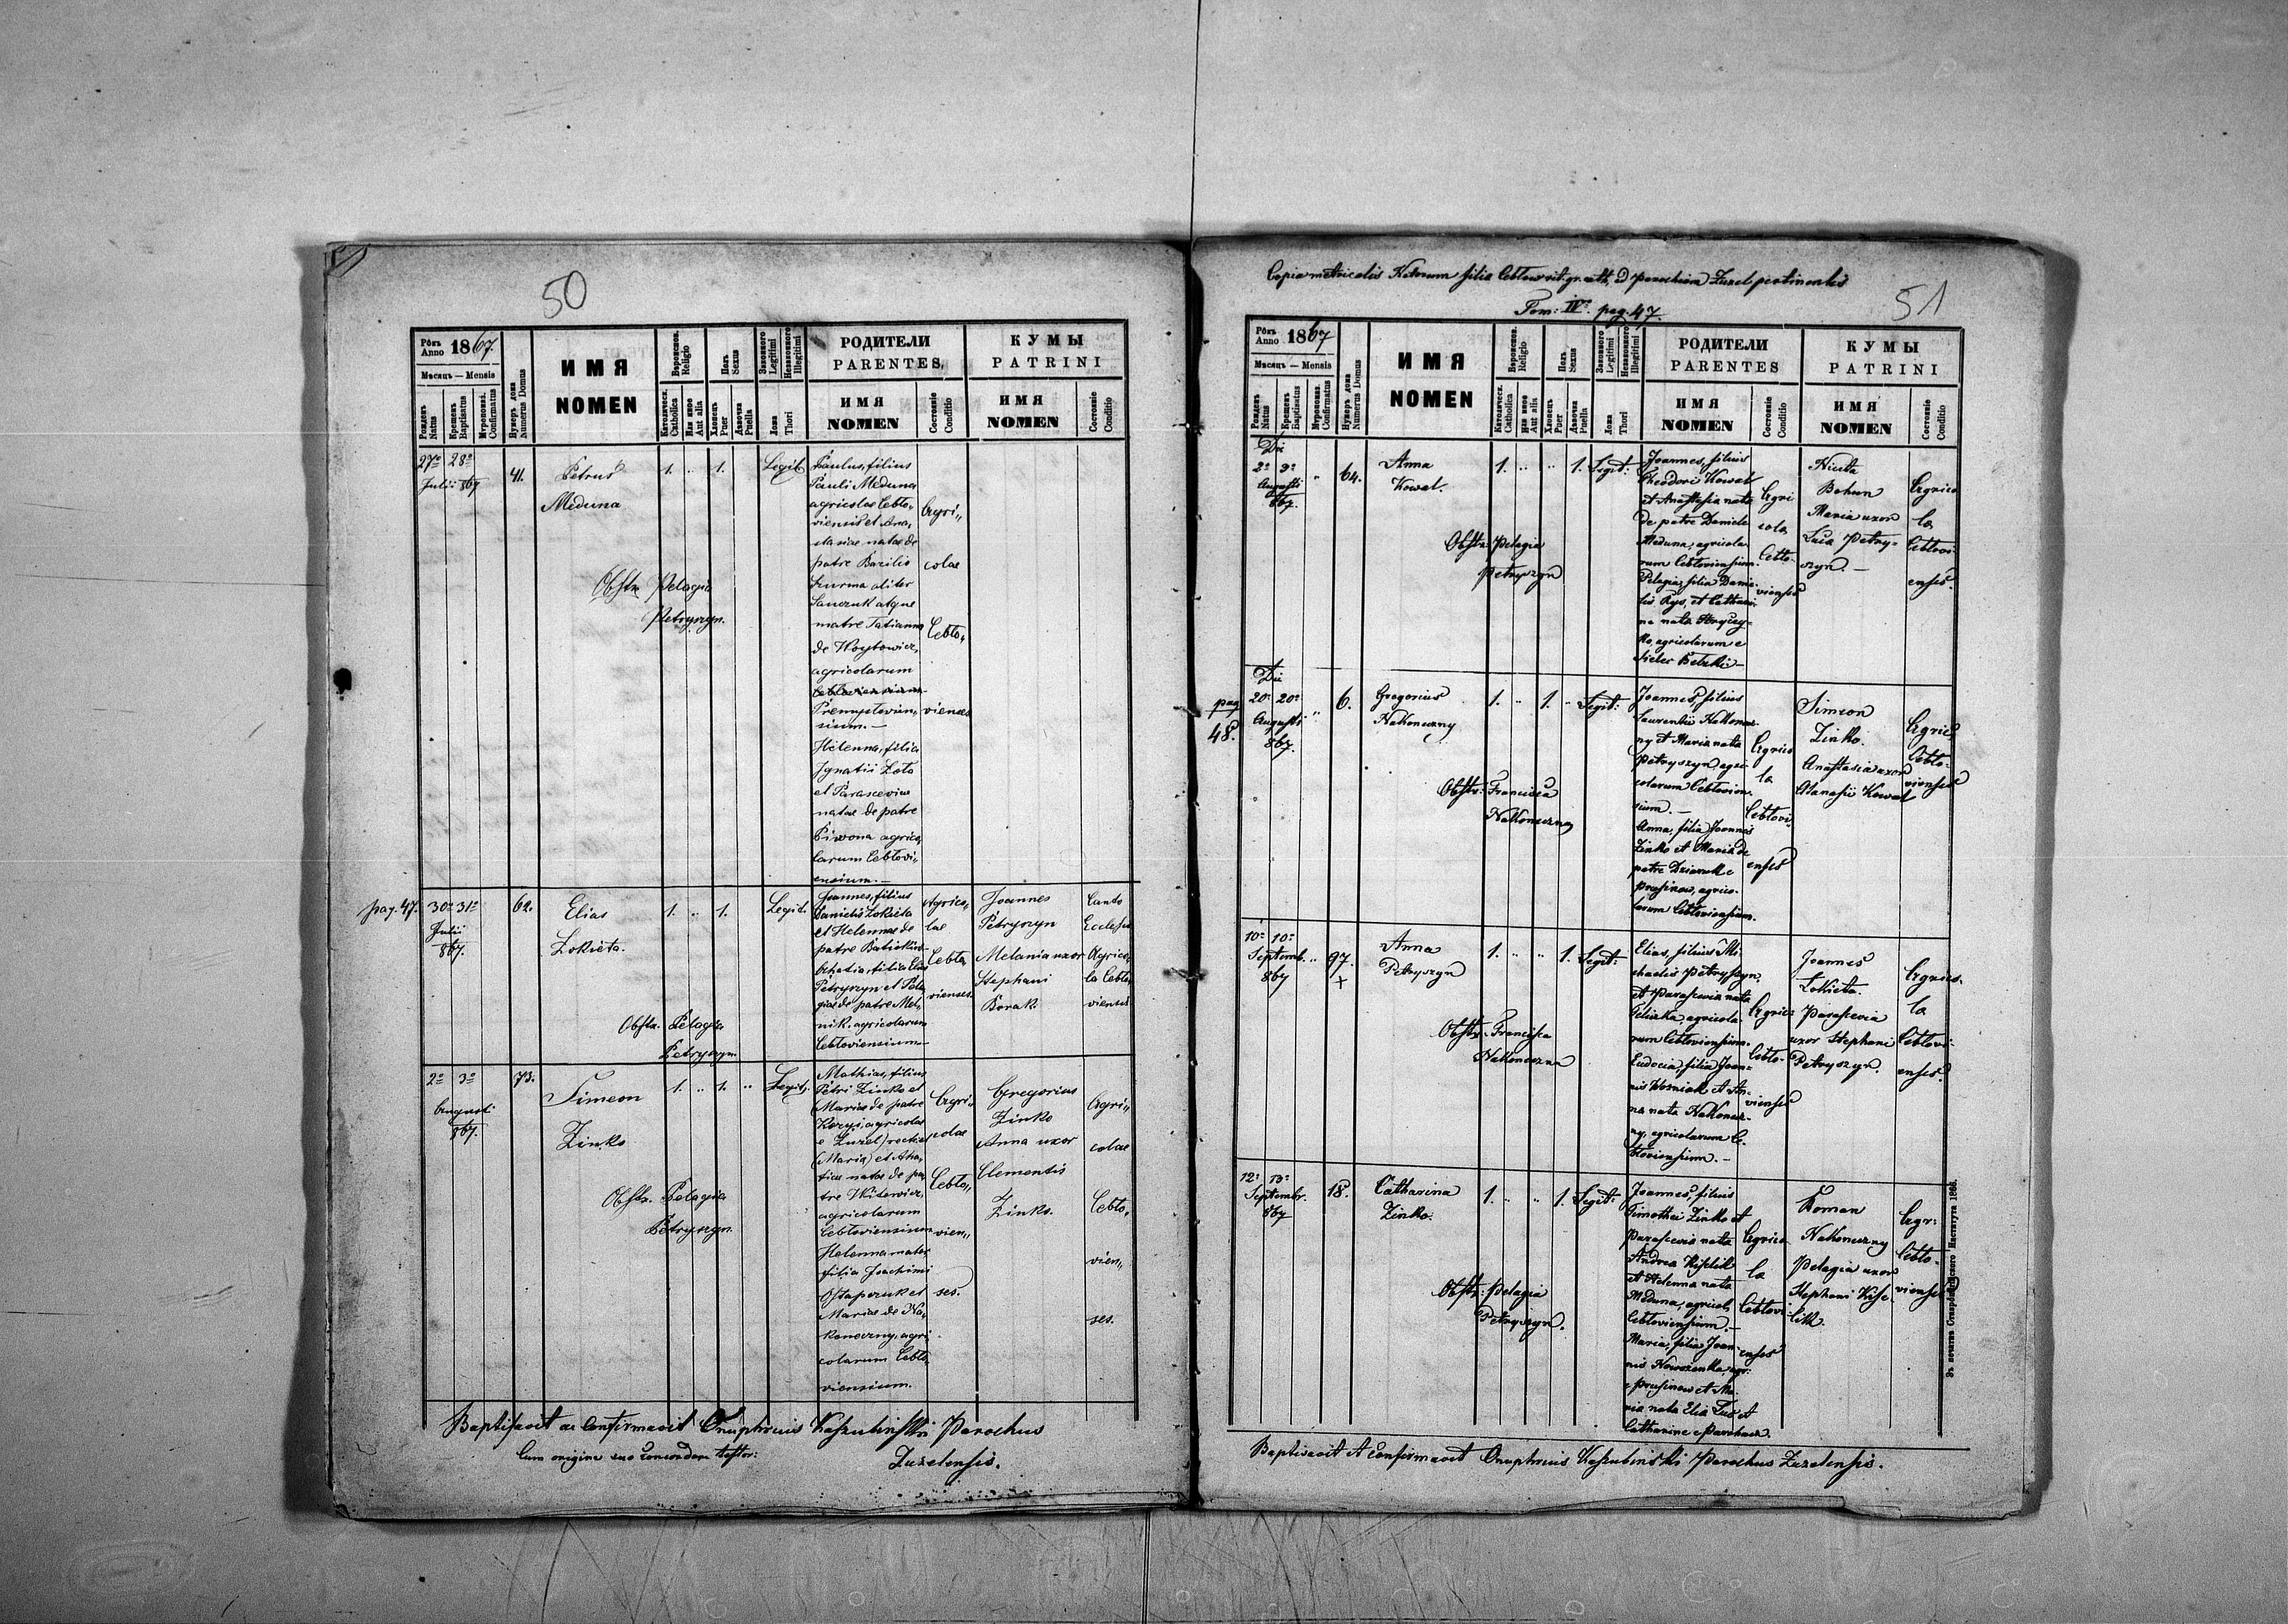 50
Рôкъ Anno 1867.
Мѣсяцъ — Mensis
Рожденъ Natus
Крещенъ Baptisatus
Мѵропомаз. Confirmatus
Нумеръ дома Numerus Domus
ИМЯ
NOMEN
Religio
Католическ. Catholica
Или иное Aut alia
Полъ Sexus
Хлопецъ Puer
Дѣвочка Puella
Законного Legitimi
Незаконного Illegitimi
Ложа Thori
РОДИТЕЛИ
PARENTES,
ИМЯ
NOMEN
Состояніе Conditio
КУМЫ
PATRINI
ИМЯ
NOMEN
Состояніе Conditio
27ª 28ª
Julii 867
41.
Petrus
Meduna
1. " 1.
Legit.
Obstr. Pelagia
Petryszyn.
Paulus, filius
Pauli Meduna
agricolae Cebło-
viensis et Ana-
stasiae natae de
patre Basilio
Kurma aliter
Sauczuk atque
matre Tatianna
de Woytowicz,
agricolarum
Przemysłovien-
sium.—
Helenna, filia
Ignatii Zoto
et Parasceviae
natae de patre
Piwona agrico-
larum Ceblovi-
ensium.—
Agri-
colae
Ceblo-
vienses
pag. 47.
30ª 31ª
Julii
867.
62.
Elias
Łokieta.
1. " 1.
Legit.
Obstr. Pelagia
Petryszyn
Joannes, filius
Danielis Łokieta
et Helennae de
patre Batiskiw
Ahatia, filia Eliae
Petryszyn et Pela-
giae de patre Mel-
nik. agricolarum
Cebloviensium—
Agrico-
lae
Ceblo-
vienses.
Joannes
Petryszyn
Melania uxor
Stephani
Borak
Canto
Ecclesiae
Agrico-
la Ceblo-
vienses
2ª 3ª
Augusti
867.
73.
Simeon
Zinko
1. " 1. "
Legit.
Obstr. Pelagia
Petryszyn.
Mathias, filius
Petri Zinko et
Mariae de patre
Koryi, agricolae
e Żużel
(Maria) et Aha-
tiae natae de pa-
tre Witewicz,
agricolarum
Cebloviensium
Helenna mater
filia Joachimi
Ostapczuk et
Mariae de Na-
koneczny, agri-
colarum Ceblo-
viensium.
Agri-
colae
Ceblo-
vien-
ses.
Gregorius
Zinko
Anna uxor
Clementis
Zinko.
Agri-
colae
Ceblo-
vien-
ses.
Baptisavit ac Confirmavit Onuphrius Kaszubinski Parochus
Cum origine suo concordare testor:
Zuzelensis.
Copia metricalis Natorum filia Cebłow rit. gr. cath. ad parochiam Żużel pertinentis
Tom: IV. pag. 47.
51
Рôкъ Anno 1867
Мѣсяцъ — Mensis
Рожденъ Natus
Крещенъ Baptisatus
Мѵропомаз. Confirmatus
Нумеръ дома Numerus Domus
ИМЯ
NOMEN
Religio
Католическ. Catholica
Или иное Aut alia
Полъ Sexus
Хлопецъ Puer
Дѣвочка Puella
Законного Legitimi
Незаконного Illegitimi
Ложа Thori
РОДИТЕЛИ
PARENTES
ИМЯ
NOMEN
Состояніе Conditio
КУМЫ
PATRINI
ИМЯ
NOMEN
Состояніе Conditio
Die
2ª 3ª
Augusti
867.
64.
Anna
Kowal.
1. " " 1. Legit:
Obstr: Pelagia
Petryszyn
Joannes, filius
Theodori Kowal
et Anastasia nata
de patre Daniele
Meduna, agricola-
rum Cebloviensium.
Pelagia, filia Danie-
lis Rys, et Cathari-
na nata Hryczy-
ko, agricolarum e
Sielec Bełzki—
Agri
cola
Ceblo-
vienses
Nicita
Bohun
Maria uxor
Luca Petry-
szyn.—
Agrico
la
Ceblovi-
enses.
pag
48.
Die
20ª 20ª
Augusti
867.
6.
Gregorius
Nakoneczny
1. " 1. " Legit:
Obstr: Francisca
Nakoneczna
Joannes, filius
Laurentii Nakonecz-
ny et Maria nata
Petryszyn, agri-
colarum Ceblovien-
sium.—
Anna, filia Joannis
Zinko et Maria de
patre Dziaruk e
Prusinow, agrico-
larum Cebloviensium.
Agrico
la
Ceblovi-
enses
Simeon
Zinko.
Anastasia uxor
Atanasii Kowal
Agric.
Ceblo-
vienses
10ª 10ª
Septemb.
867
97.
+
Anna
Petryszyn
1. " " 1. Legit:
Obstr: Francisca
Nakoneczna
Elias, filius Mi-
chaelis Petryszyn
et Parascevia nata
agricola-
rum Cebloviensium.
Eudocia, filia Joan-
nis Woźniak et An-
na nata Nakonecz-
ny, agricolarum Ce-
bloviensium.—
Agrico
Ceblo-
vienses
Joannes
Łokieta.
Parascevia
uxor Stephani
Petryszyn.
Agrico-
la
Ceblovi-
enses.
12ª 13ª
Septembr.
867
18.
Catharina
Zinko.
1. " " 1. Legit:
Obstr: Pelagia
Petryszyn.
Joannes, filius
Timothei Zinko et
Parascevia nata
Andrea Kiselik
et Helenna nata
Meduna, agricol.
Cebloviensium.—
Maria, filia Joan-
nis Nowosenka, agr:
e Prusinow et Ma-
ria nata Elia Lus et
Catharine e Parchacz.
Agrico
la
Ceblovi
enses
Roman
Nakoneczny
Pelagia uxor
Stephani Kise-
lik.
Agr:
Ceblo-
vienses
Baptisavit et Confirmavit Onuphrius Kaszubinski Parochus Zuzelensis.
Института 1866.